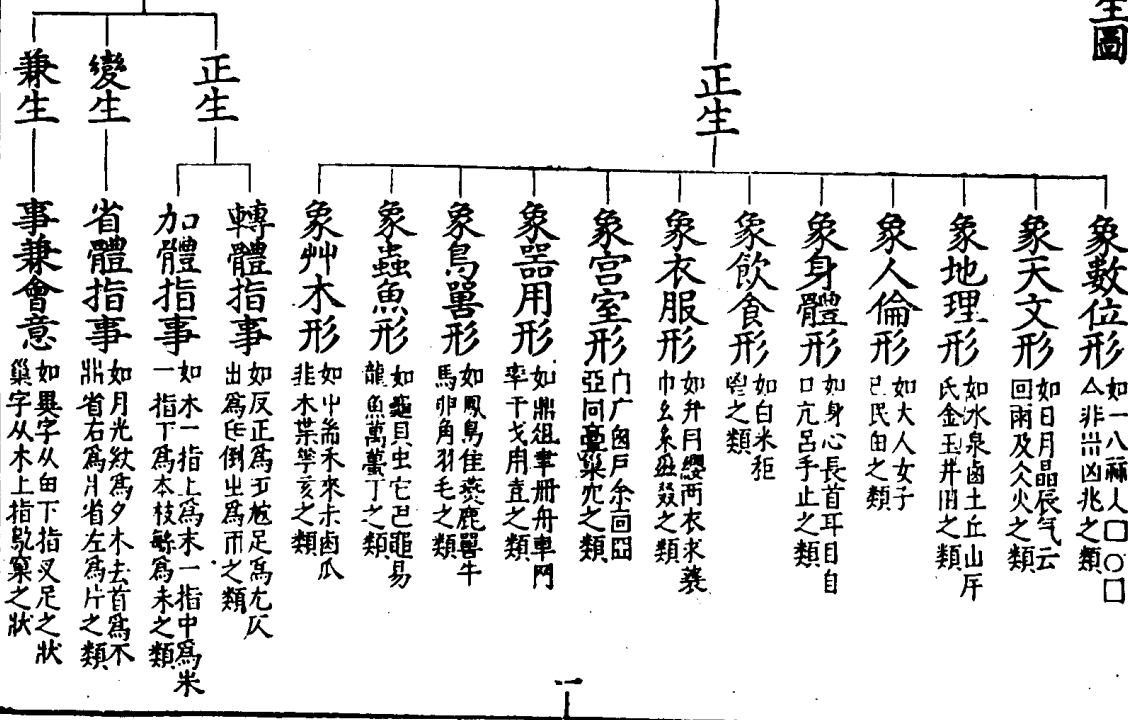 生圖
正生
象數位形
如一八㒳人囗〇囗
亼非卌凶兆之類
象天文形
如日月晶辰气云
回雨及仌火之類
象地理形
如水泉鹵土丘山厈
氏金玉井田之類
象人倫形
如大人女子
民由之類
象身體形
如身心長首耳目自
口亢呂手止之類
象飲食形
如白米秬
鬯之類
象衣服形
如弁冃纓兩衣求裘
巾幺糸叕之類
象宮室形
门广囪戶余回囧
亞向臺巢穴之類
象器用形
如鼎俎聿冊舟車門
率干戈用壴之類
象鳥嘼形
如鳳鳥隹燕鹿嘼牛
馬卵角羽毛之類
象蟲魚形
如龜貝虫它巴黽易
龍魚萬丁之類
象艸木形
如屮耑禾來未鹵瓜
韭木枼亥之類
正生
轉體指事
如反正為尪足為尢仄
出為倒出為而之類
加體指事
如木一指上為末一指中為朱
一指下為本枝緐為未之類
變生
省體指事
如月光㱁為夕木去首為不
鼎省右為爿省左為片之類
兼生
事兼會意
如異字从由下指又足之狀
巢字从木上指鳥窠之狀
一